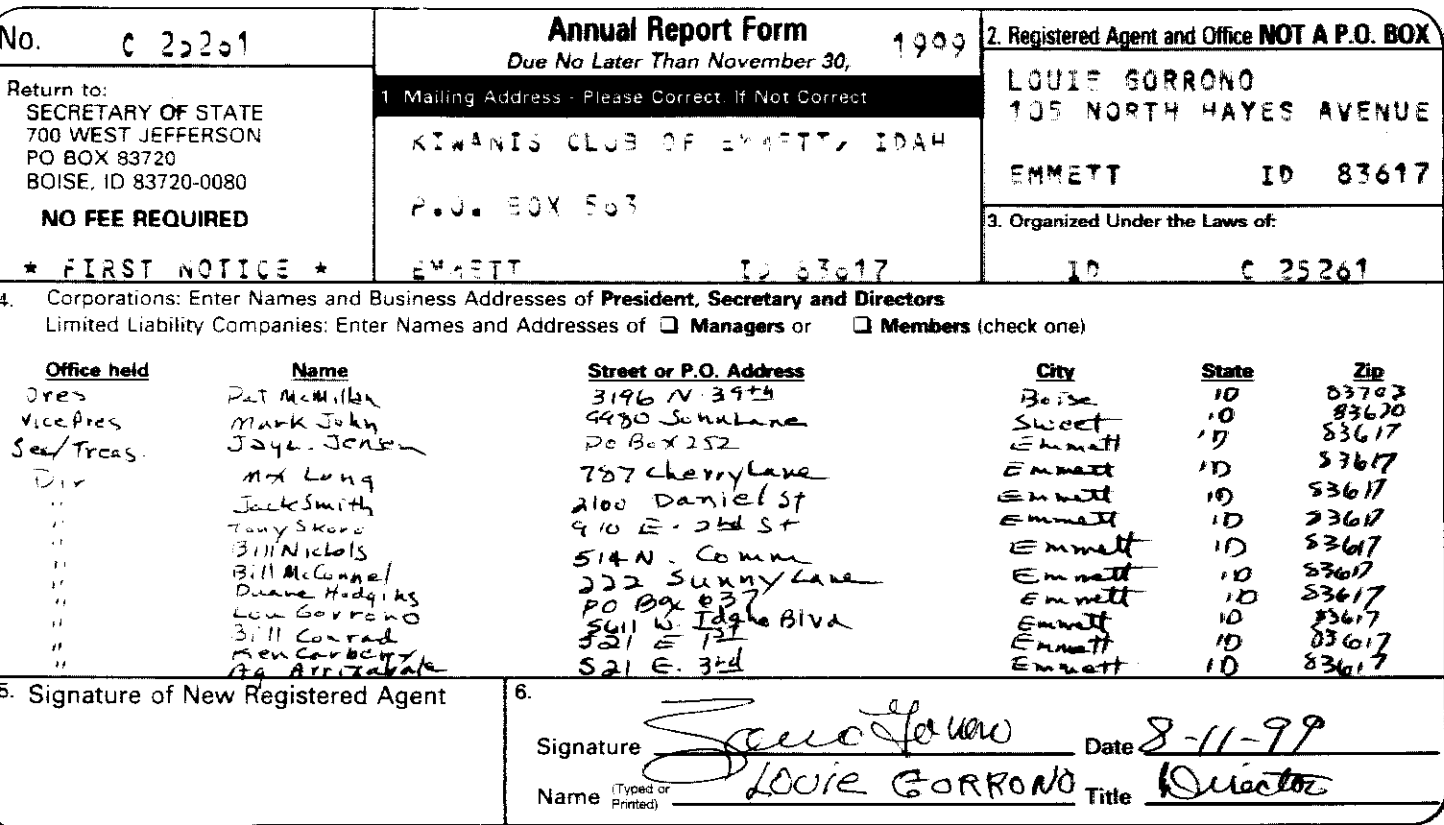 No. C 25261
Annual Report Form 1999
Due No Later Than November 30,
Return to:
SECRETARY OF STATE
700 WEST JEFFERSON
PO BOX 83720
BOISE, ID 83720-0080
NO FEE REQUIRED
* FIRST NOTICE *
1 Mailing Address - Please Correct. If Not Correct
KIWANIS CLUB OF EMMETT, IDAH
P.O. BOX 563
EMMETT ID 83617
2. Registered Agent and Office NOT A P.O. BOX
LOUIE GORRONO
105 NORTH HAYES AVENUE
EMMETT ID 83617
3. Organized Under the Laws of:
ID C 25261
4. Corporations: Enter Names and Business Addresses of President, Secretary and Directors
Limited Liability Companies: Enter Names and Addresses of ❑ Managers or ❑ Members (check one)
Office held Name Street or P.O. Address City State Zip
Pres Pat McMillan 3196 N 39th Boise ID 83703
Vice Pres Mark John Lane Sweet ID 83670
Sec/Treas. Jay L. Jensen Po Box 252 Emmett ID 83617
Dir Long 787 Cherry Lane Emmett ID 83617
" Jack Smith 2100 Daniel St Emmett ID 83617
" Tony Skoro 910 E. 2nd St Emmett ID 83617
" Bill Nichols 514 N. Comm Emmett ID 83617
" Bill McConnel 222 Sunny Lane Emmett ID 83617
" Duane Hodgins PO Box 637 Emmett ID 83617
" Lou Gorrono 5611 W. Idaho Blvd Emmett ID 83617
" Bill Conrad 521 E 1st Emmett ID 83617
" Ken Carberry
" Ag Arrizabala 521 E. 3rd Emmett ID 83617
5. Signature of New Registered Agent
6.
Signature Date 8-11-99
Name (Typed or Printed) LOUIE GORRONO Title Director